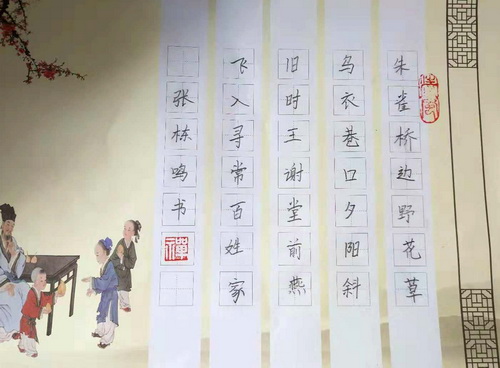 朱雀桥边野花草
乌衣巷口夕阳斜
旧时王谢堂前燕
飞入寻常百姓家
张栋鸣书